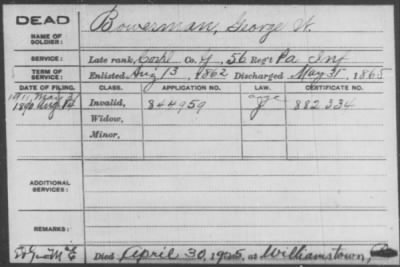 DEAD
NAME OF SOLDIER:
Bowerman, George W.
SERVICE:
Late rank, Corpl Co. 56 Reg't Pa Inf
TERM OF SERVICE:
Enlisted Aug 13, 1862 Discharged May 31, 1865
DATE OF FILING. CLASS. APPLICATION NO. LAW. CERTIFICATE NO.
1890 Aug Invalid, 844959 882334
Widow,
Minor,
ADDITIONAL SERVICES:
REMARKS:
Died April 30, 1925, at Williamstown, Pa